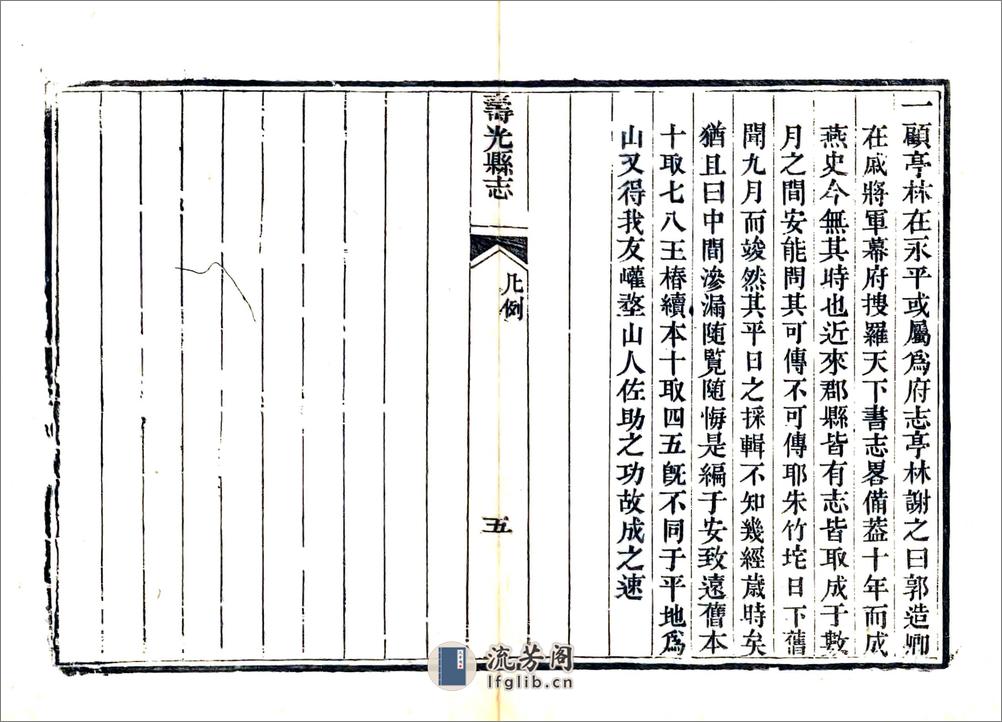 一顧亭林在永平或屬爲府志亭林謝之曰郭造卿
在戚將軍幕府搜羅天下書志畧備葢十年而成
燕史今無其時也近來郡縣皆有志皆取成于數
月之間安能問其可傳不可傳耶朱竹垞日下舊
聞九月而竣然其平日之採輯不知幾經歳時矣
猶且曰中間滲漏隨覽隨悔是編于安致遠舊本
十取七八王椿續本十取四五旣不同于平地爲
山又得我友巏嵍山人佐助之功故成之速
壽光縣志
凡例
五
流芳阁
lfglib.cn